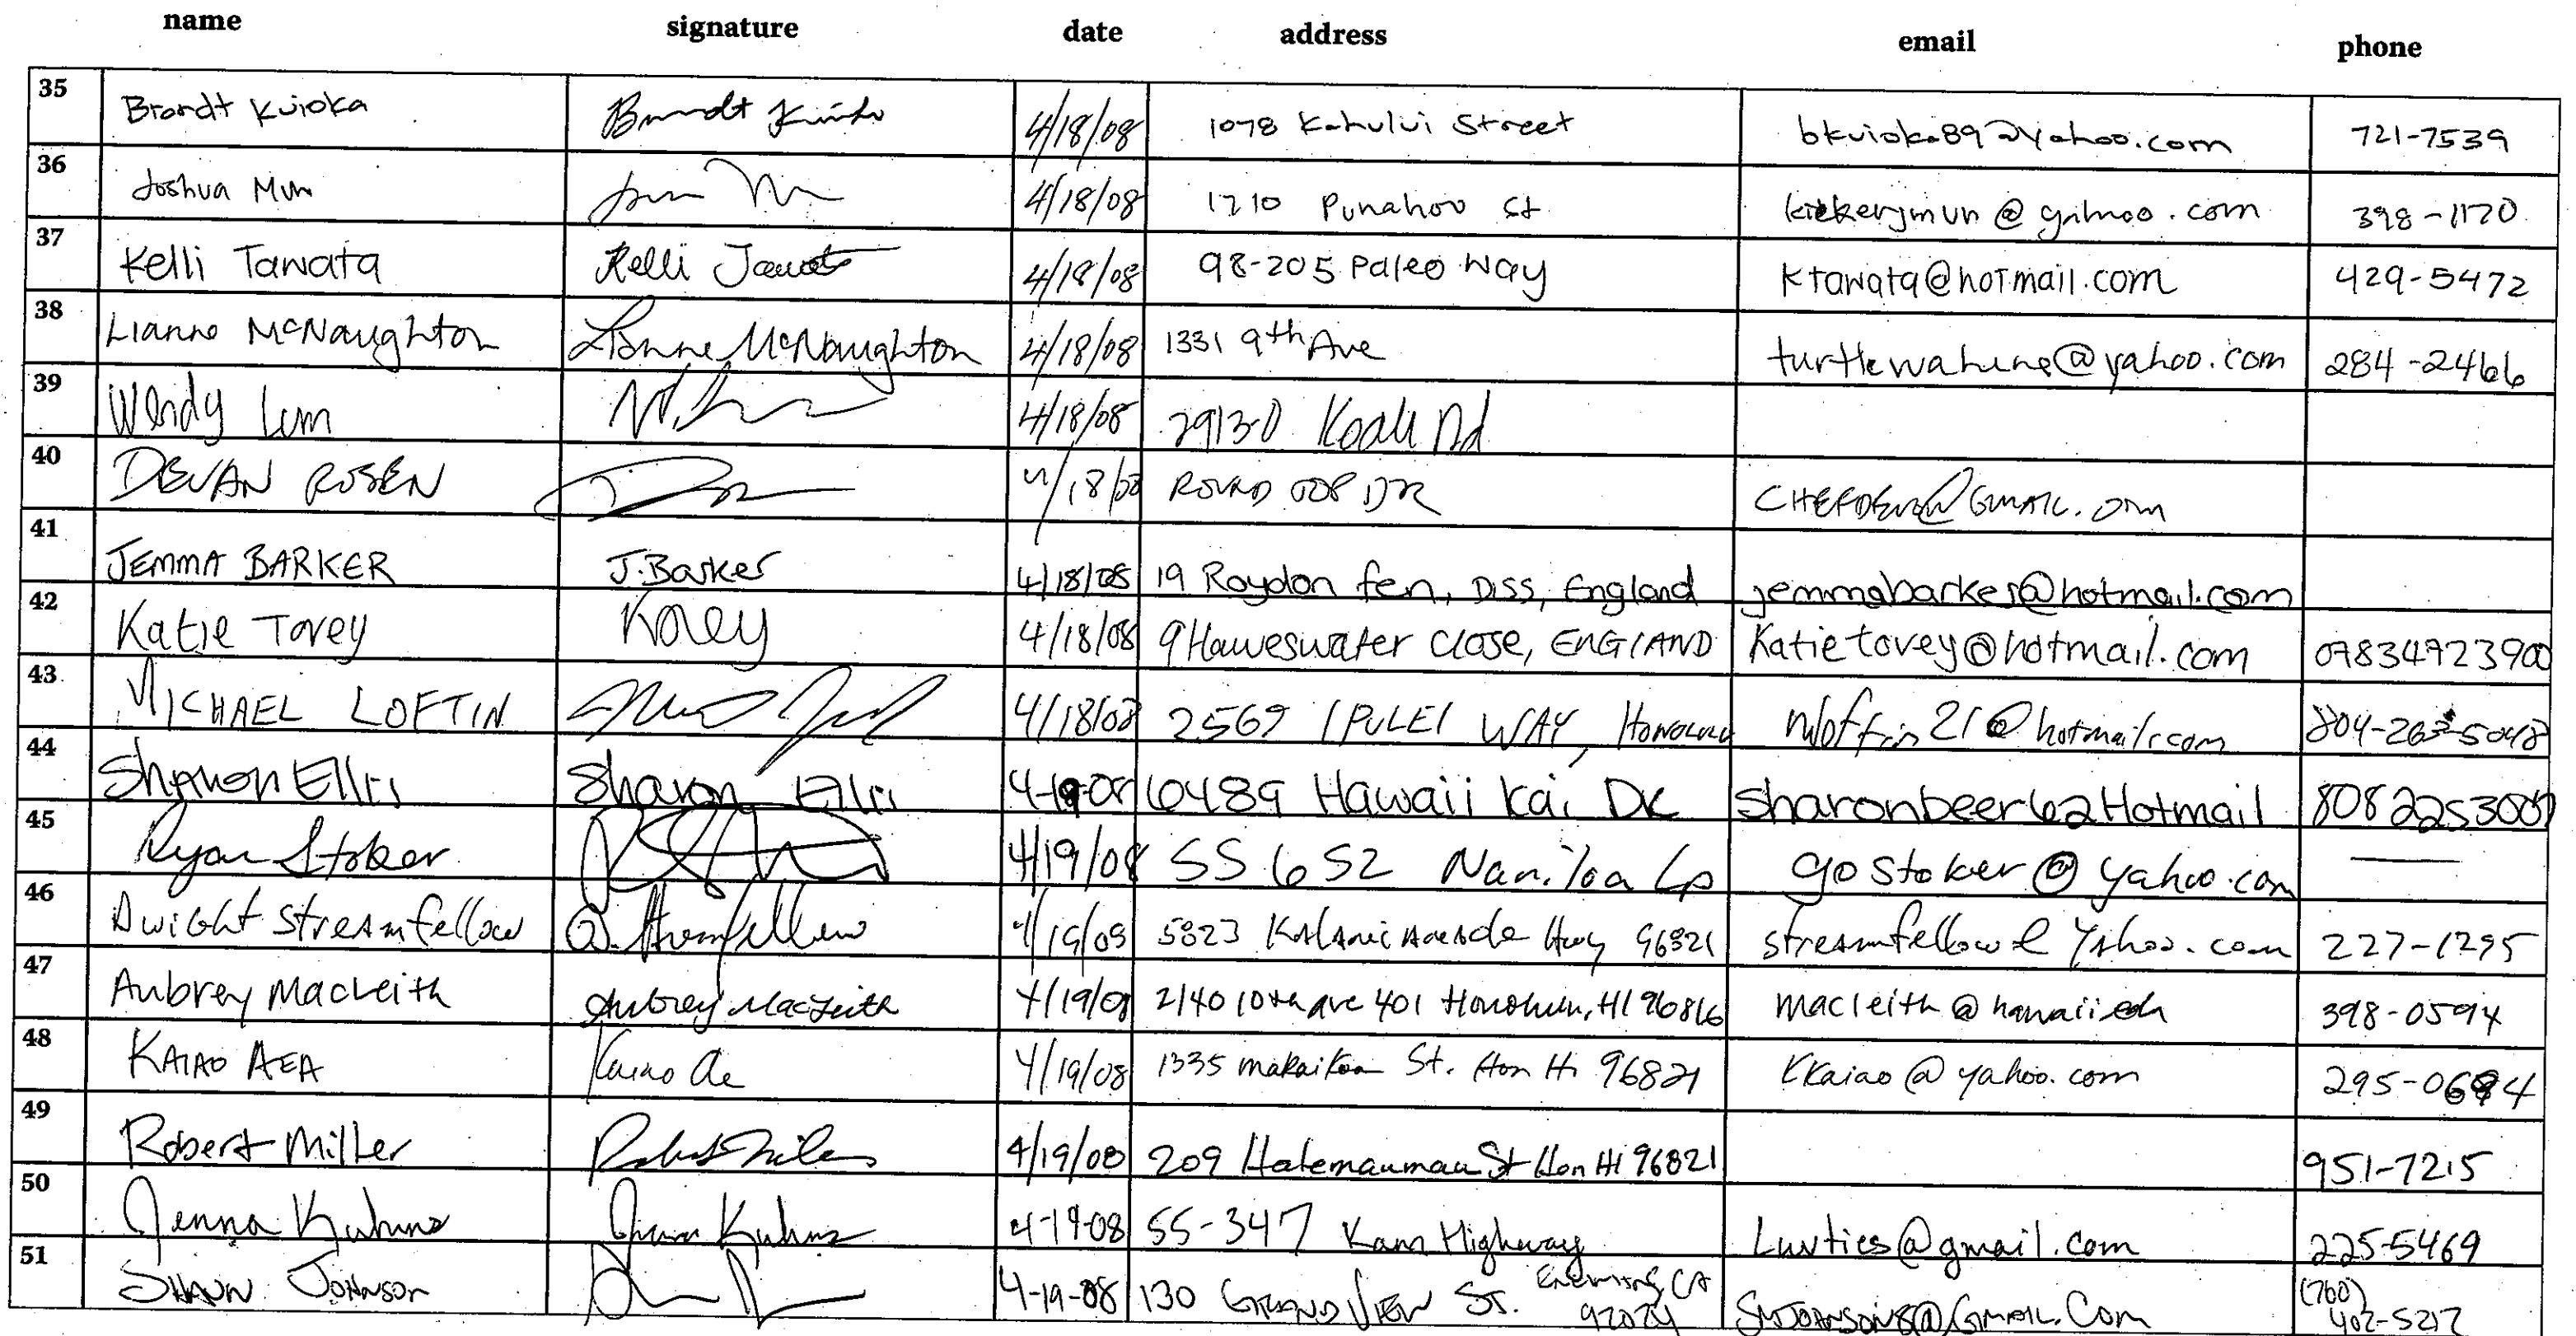 name signature date address email phone
35 Brandt Kuioka Brandt 4/18/08 1078 Kahului Street bkuioka89@yahoo.com 721-7539
36 Joshua Mun 4/18/08 1210 Punahou St @ . com 398-1170
37 Kelli Tawata Kelli Tawata 4/18/08 98-205 Paleo Way ktawata@hotmail.com 429-5472
38 Lianne McNaughton Lianne McNaughton 4/18/08 1331 9th Ave turtlewahine@yahoo.com 284-2466
39 Wendy Lum 4/18/08 2913-D Koali Rd
40 DEVAN ROSEN 4/18/08 ROUND TOP DR
41 JEMMA BARKER J.Barker 4/18/08 19 Roydon fen, Diss, England jemmabarker@hotmail.com
42 Katie Tovey KTovey 4/18/08 9 Haweswater Close, ENGLAND Katietovey@hotmail.com 07834723900
43 MICHAEL LOFTIN 4/18/08 2569 IPULEI WAY, HONOLULU mloftin21@hotmail.com
44 Sharon Ellis Sharon Ellis 6489 Hawaii Kai Dr Sharonbeer62Hotmail
45 Ryan Stoker 4/19/08 55 652 Naniloa Lp gostoker@yahoo.com
46 Dwight Streamfellow D. Streamfellow 4/19/08 5823 Kalanianaole Hwy 96821 streamfellow@Yahoo.com 227-1295
47 Aubrey MacLeith Aubrey MacLeith 4/19/08 2140 10th ave 401 Honolulu, HI 96816 macleith@hawaii.edu 398-0594
48 KAIAO AEA Kaiao 4/19/08 1335 makaikoa St. Hon Hi 96821 kkaiao@yahoo.com
49 Robert Miller Robert Miller 4/19/08 209 Halemaumau St Hon HI 96821 951-7215
50 Jenna Kuhns Jenna Kuhns 4-19-08 55-347 Kam Highway Luvties@gmail.com 225-5469
51 SHAUN JOHNSON 4-19-08 130 GRAND VIEW ST. CA 92024 (760) 402-5217